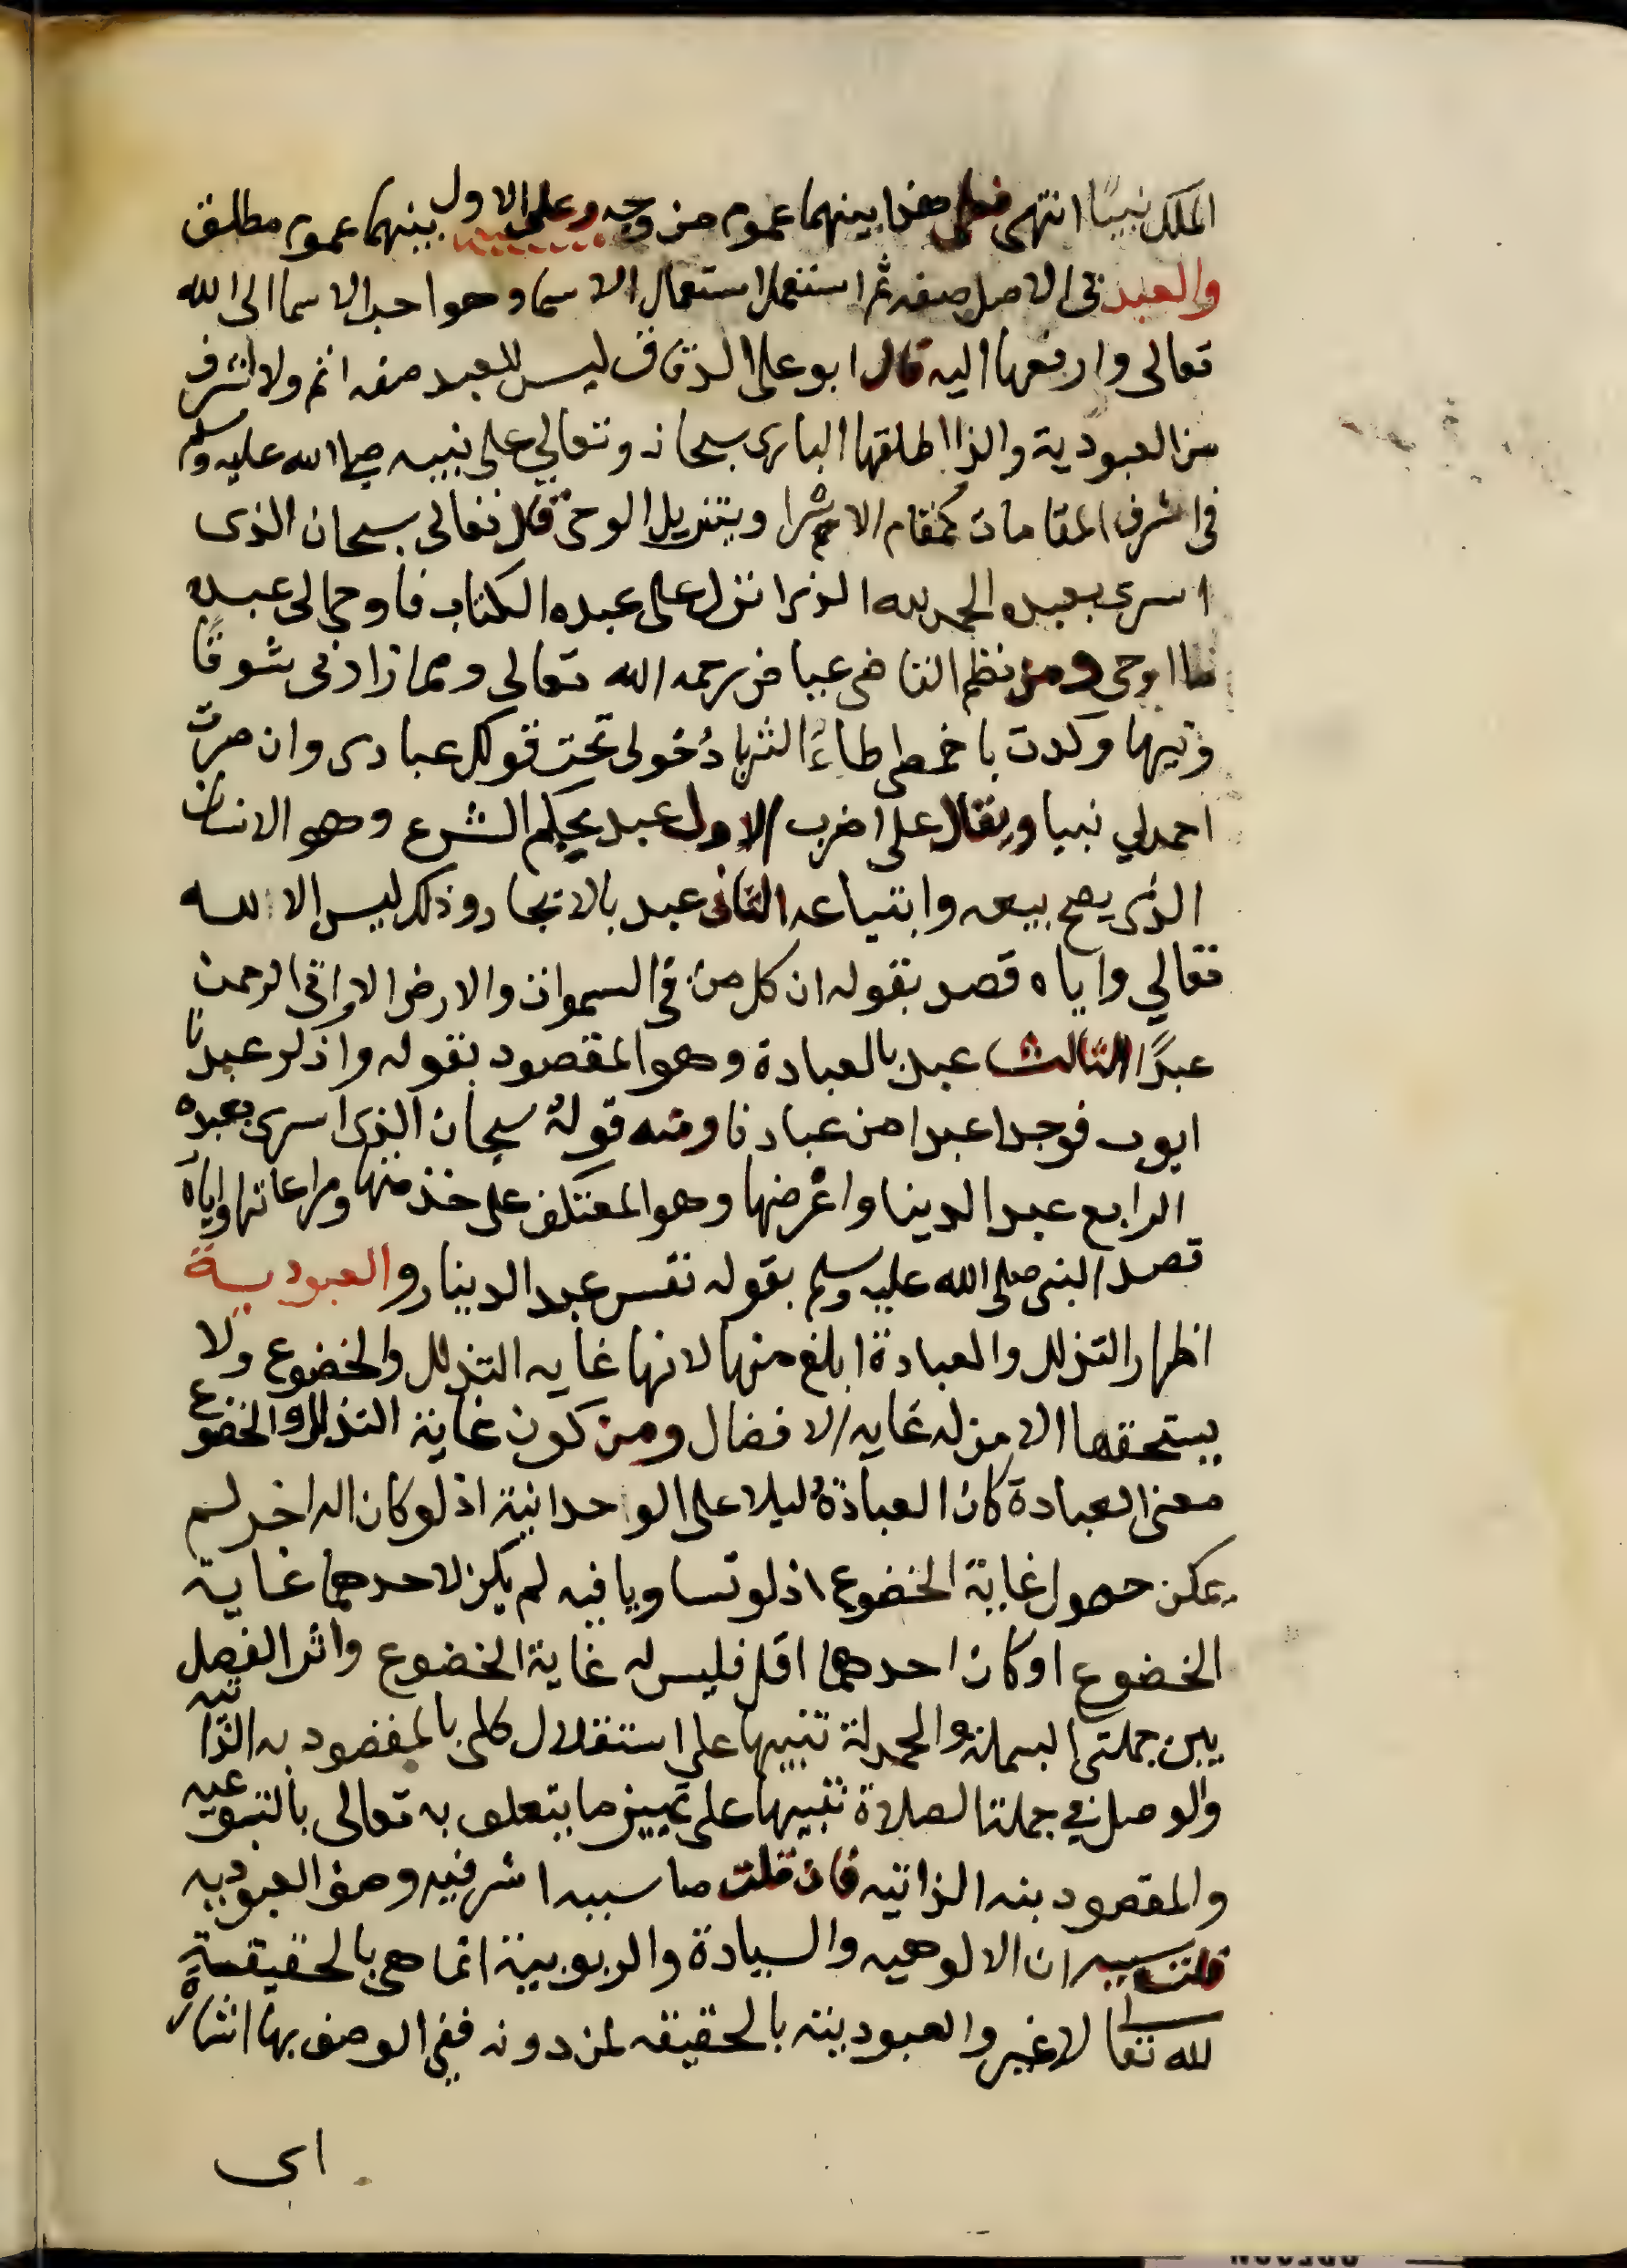 الملك نبيًا انتهى فعلى هذا بينهما عموم من وجه وعلى الاول بينهما عموم مطلق
والعبد فى الاصل صفة ثم استعمل استعمال الاسما وهو احب الاسما الى الله
تعالى وارفعها اليه قال ابو على الدقاق ليس للعبد صفه اتم ولا اشرف
من العبودية ولذا اطلقها البارى سبحانه وتعالي على نبيه صلى الله عليه وسلم
فى اشرف المقامات كمقام الاسرا وبتنزيل الوحى قال تعالى سبحان الذى
اسرى بعبده الحمد لله الذى انزل على عبده الكتاب فاوحى الى عبده
ما اوحى ومن نظم القاضى عياض رحمه الله تعالى ومما زادنى شوقًا
وتيها وكدت باخمصى اطاءُ الثريا دُخولى تحت قولك عبادى وان صيرت
احمد لي نبيا ويقال على اضرب الاول عبد بحكم الشرع وهو الانسان
الذى يصح بيعه وابتياعه الثانى عبد بالايجاد وذلك ليس الا لله
تعالي واياه قصد بقوله ان كل من فى السموات والارض الا اتى الرحمن
عبدًا الثالث عبد بالعبادة وهو المقصود بقوله واذكر عبدنا
ايوب فوجدا عبدا من عبادنا ومنه قولهُ سبحان الذى اسرى بعبده
الرابع عبد الدنيا واعرضها وهو المعتكف على خذمتها ومراعاتها واياه
قصد النبى صلى الله عليه وسلم بقوله تعس عبد الدينار والعبودية
اظهار التذلل والعبادة ابلغ منها لانها غايه التذلل والخضوع ولا
يستحقها الا من له غايه الافضال ومن كون غاية التذلل والخضوع
معنى العبادة كان العبادة دليلا على الوحدانية اذ لو كان اله اخر لم
يمكن حصول غاية الخضوع اذ لو تساويا فيه لم يكن لاحدهما غاية
الخضوع او كان احدهما اقل فليس له غاية الخضوع واثر الفصل
بين جملتى البسملة والحمدلة تنبيها على استقلال كل بالمقصود به الذاتيه
والوصل في جملتا الصلاة تنبيها على تمييز ما يتعلق به تعالى بالتبوعيه
والمقصود بنه الذاتيه فان قلت ما سبب اشرفيه وصف العبوديه
قلت سببه ان الالوهيه والسيادة والربوبية انما هى بالحقيقة
لله تعالى لا غير والعبودية بالحقيقه لمن دونه ففى الوصف بها اشارة
اى